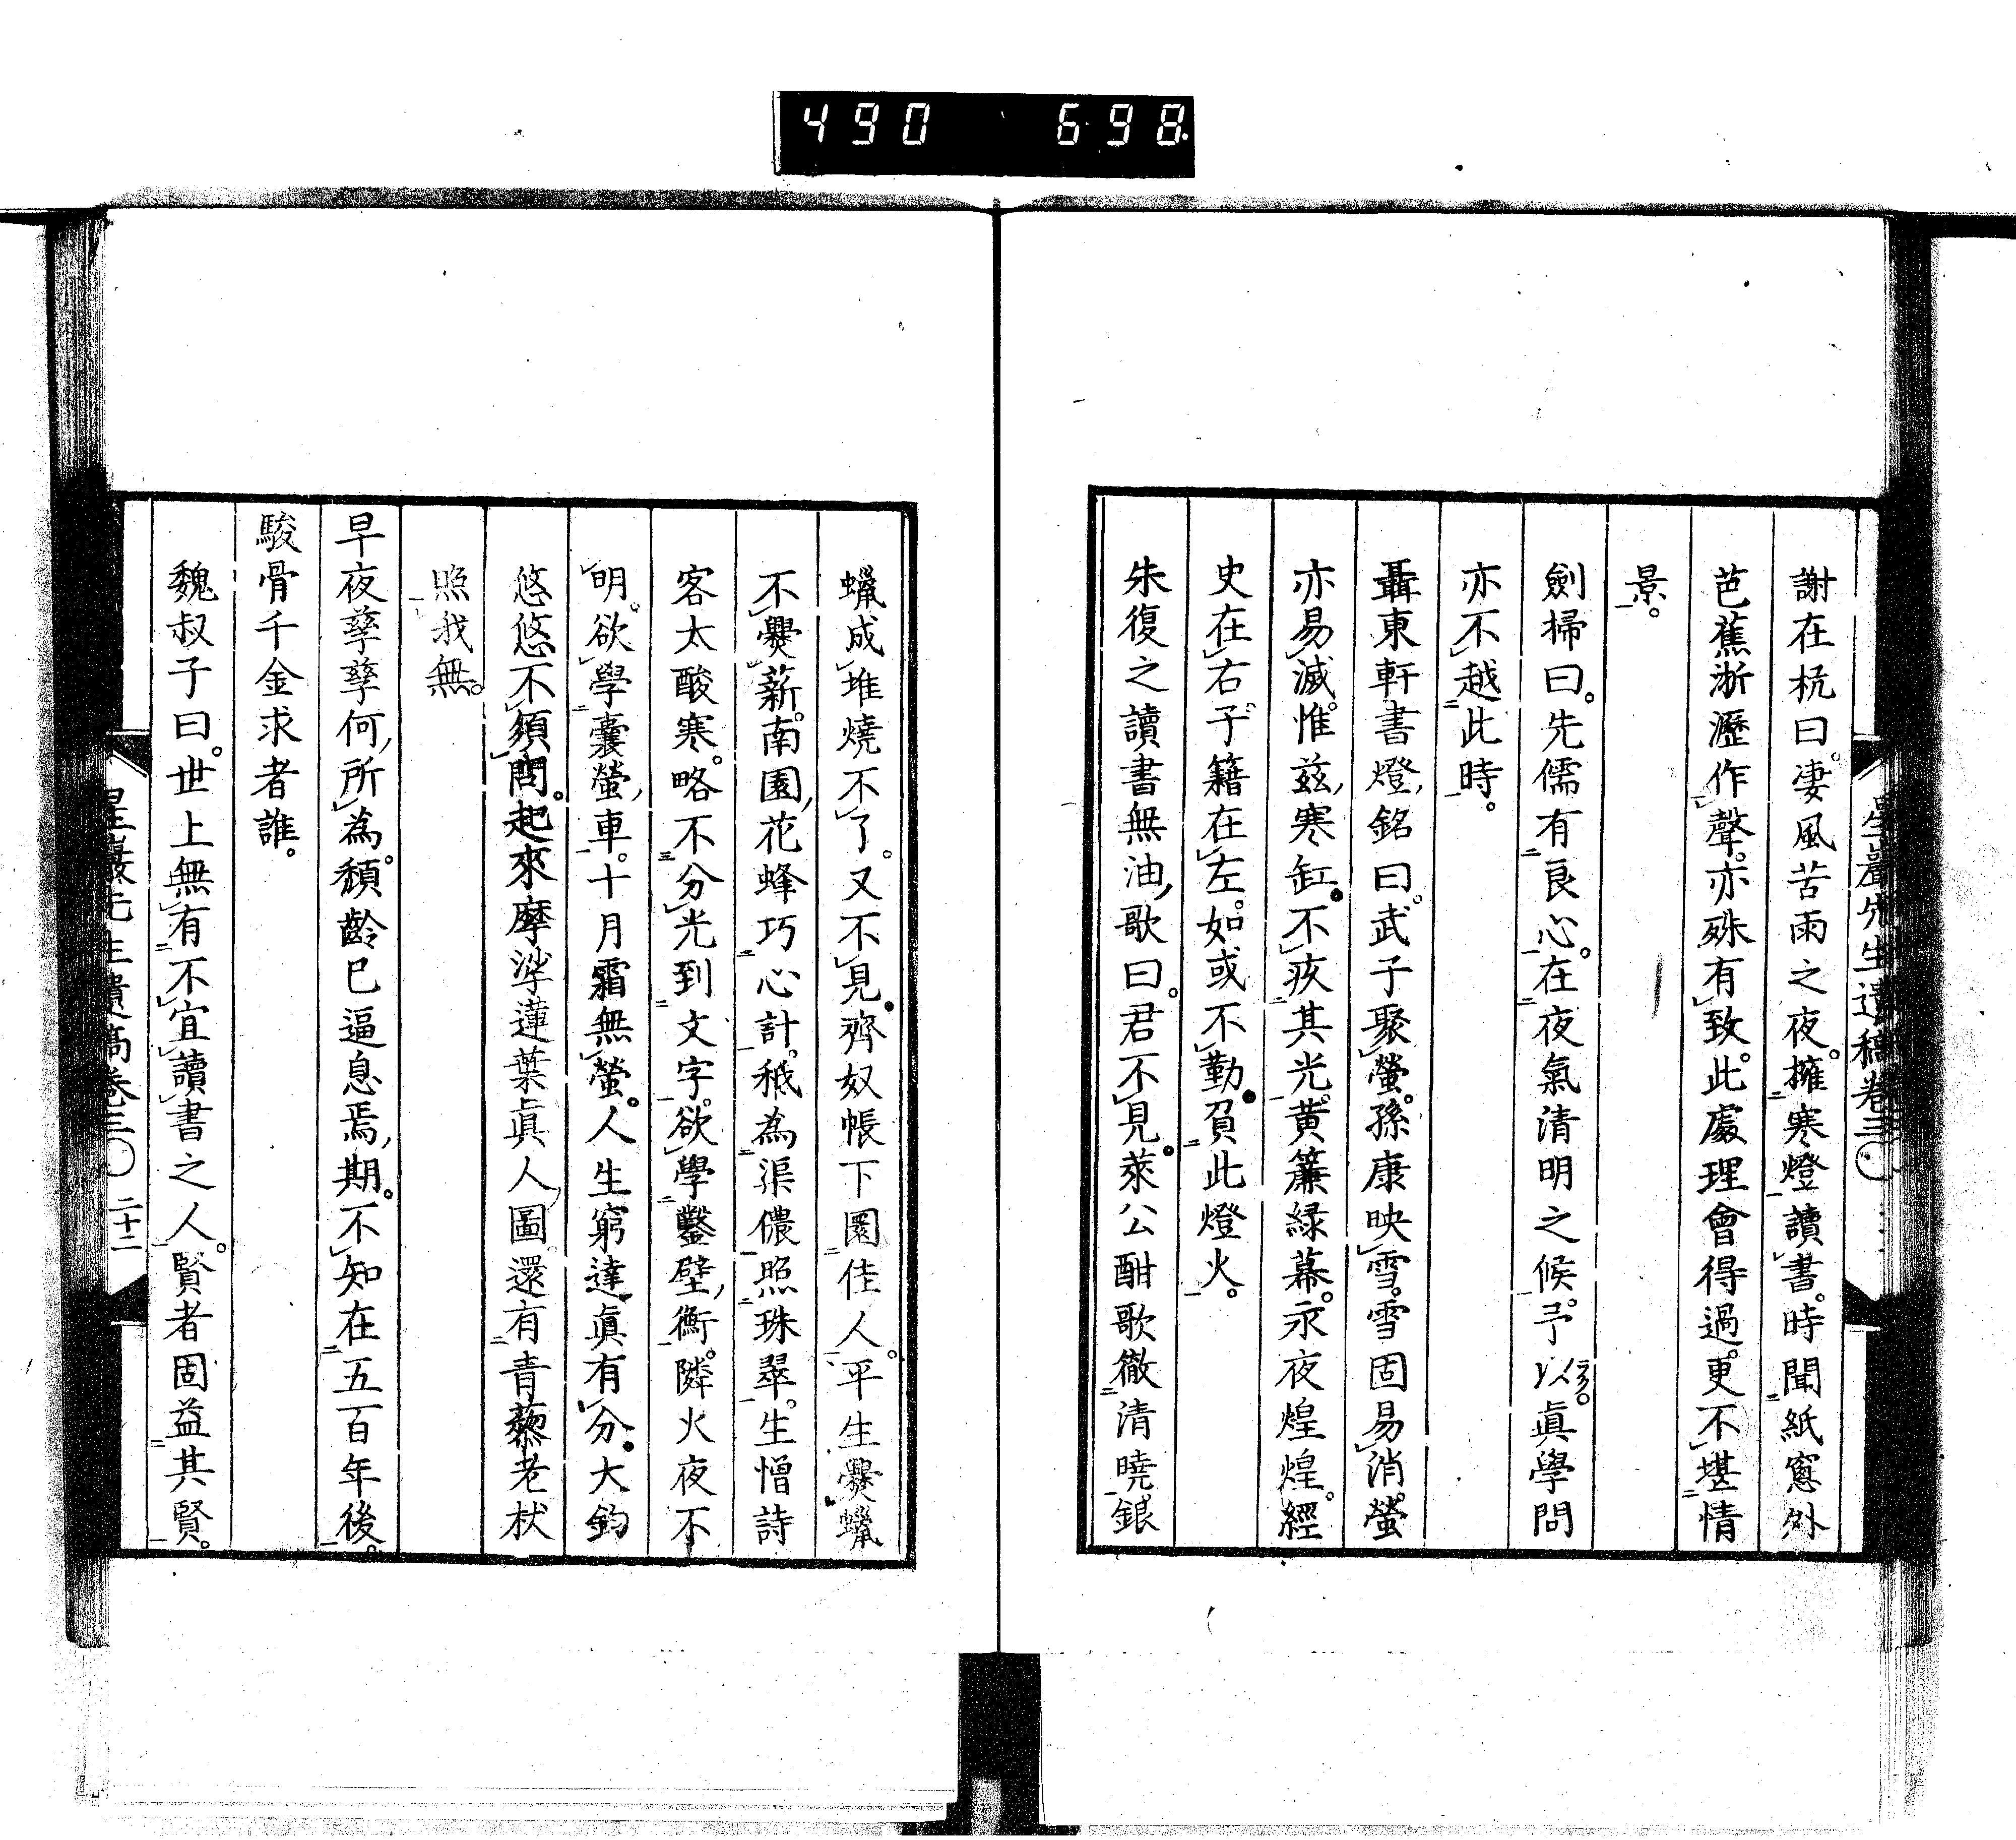 490 698
星巖先生遺稿卷三
謝在杭曰。凄風苦雨之夜。擁寒燈讀書。時聞紙窓外
芭蕉淅瀝作聲。亦殊有致。此處理會得過。更不堪情
景。
劍掃曰。先儒有良心。在夜氣清明之候。予以眞學問
亦不越此時。
聶東軒書燈銘曰。武子聚螢。孫康映雪。雪固易消。螢
亦易滅。惟茲寒缸。不疚其光。黄簾緑幕。永夜煌煌。經
史在右。子籍在左。如或不勤。負此燈火。
朱復之讀書無油歌曰。君不見。萊公酣歌徹清曉銀
蠟成堆燒不了。又不見。齊奴帳下圂佳人。平生爨蠟
不爨薪。南園花蜂巧心計。秪為渠儂照珠翠。生憎詩
客太酸寒。略不分光到文字。欲學鑿壁衡。隣火夜不
明。欲學囊螢車。十月霜無螢。人生窮達眞有分。大鈞
悠悠不須問。起來摩挲蓮葉眞人圖還有青藜老杖
照我無。
早夜孳孳何所為。頽齡已逼息焉期。不知在五百年後。
駿骨千金求者誰。
魏叔子曰。世上無有不宜讀書之人。賢者固益其賢。
星巖先生遺稿卷三〇 二十二